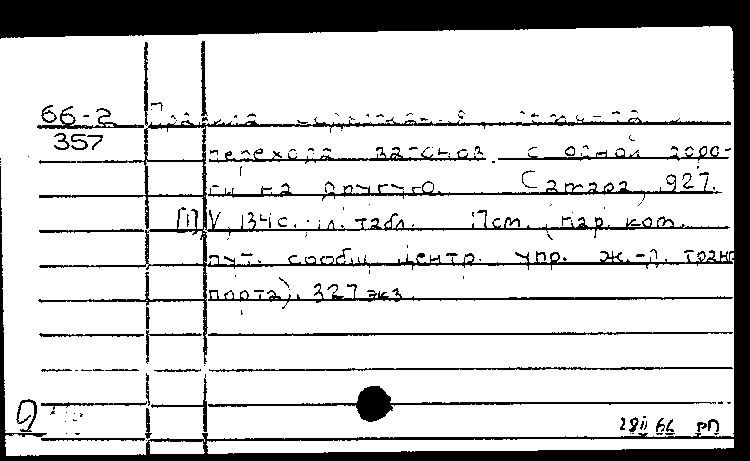 66-2 Правила
357
перехода вагонов с одной доро-
ги на другую. Самара, 927.
[1], V, 134 с. ил. табл. 17 см. (нар. ком.
пут. сообщ. центр. упр. ж.-д. транс
порта). 327 экз.
28 II 66 РП